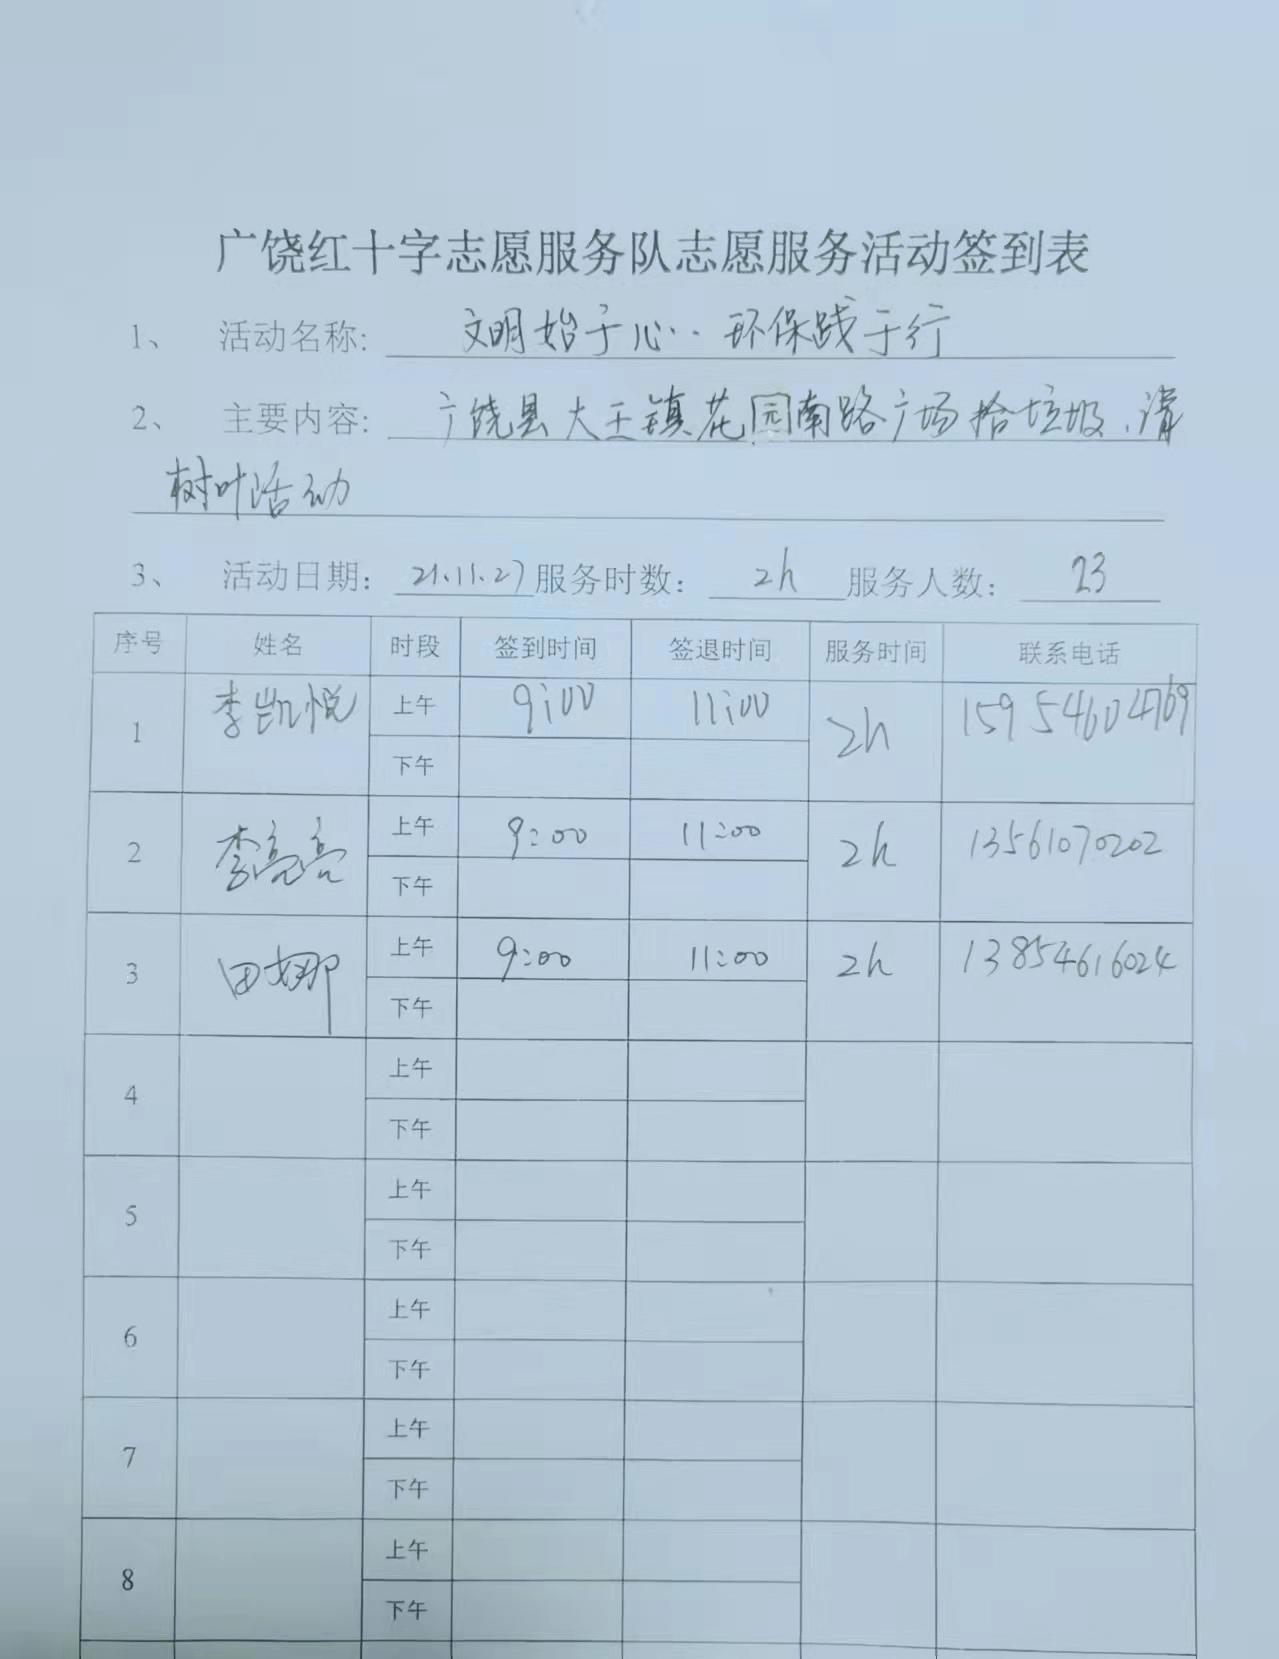 广饶红十字志愿服务队志愿服务活动签到表
1、 活动名称: 文明始于心.. 环保践于行
2、 主要内容: 广饶县大王镇花园南路广场拾垃圾、清
树叶活动
3、 活动日期: 21.11.27 服务时数: 2h 服务人数: 23
序号 姓名 时段 签到时间 签退时间 服务时间 联系电话
1 李凯悦 上午 9:00 11:00 2h 15954604769
下午
2 李亮亮 上午 9:00 11:00 2h 13561070202
下午
3 田娜 上午 9:00 11:00 2h 13854616024
下午
4 上午
下午
5 上午
下午
6 上午
下午
7 上午
下午
8 上午
下午